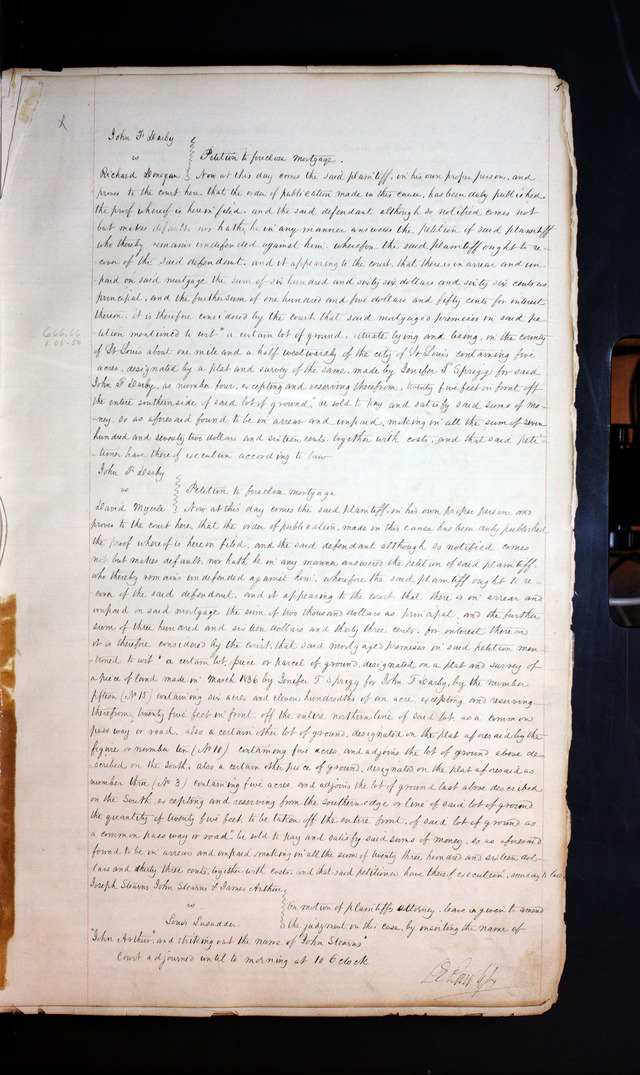 5
x
John F Darby
vs } Petition to foreclose mortgage.
Richard Donegan } Now at this day comes the said plaintiff, in his own proper person, and
proves to the court here, that the order of publication made in this cause, has been duly published
the proof whereof is herein filed. and the said defendant although so notified comes not
but makes default, nor hath he in any manner answered the petition of said plaintiff
who thereby remains undefended against him. wherefore the said plaintiff ought to re-
cover of the said defendant. and it appearing to the court, that there is in arrear and un-
paid on said mortgage the sum of six hundred and sixty six dollars and sixty six cents as
principal, and the further sum of one hundred and five dollars and fifty cents for interest
thereon. it is therefore considered by the court that said mortgaged premises in said pe-
666.66
1.05.50
tition mentioned to wit "a certain lot of ground, situate lying and being, in the county
of St Louis about one mile and a half westwardly of the city of St Louis containing five
acres, designated by a plat and survey of the same, made by Jenefer T Sprigg for said
John F Darby, as number four, excepting and reserving therefrom, twenty five feet in front off
the entire southern side of said lot of ground," be sold to pay and satisfy said sums of mo-
ney, so as aforesaid found to be in arrear and unpaid, making in all the sum of seven
hundred and seventy two dollars and sixteen cents. together with costs, and that said peti-
tioner have thereof execution according to law
John F Darby
vs } Petition to foreclose mortgage
David } Now at this day comes the said plaintiff, in his own proper person, and
proves to the court here, that the order of publication, made in this cause has been duly published
the proof whereof is here in filed, and the said defendant although so notified comes
not but makes default, nor hath he in any manner answered the petition of said plaintiff,
who thereby remains undefended against him. wherefore the said plaintiff ought to re-
cover of the said defendant. and it appearing to the court that there is in arrear and
unpaid on said mortgage the sum of two thousand dollars as principal, and the further
sum of three hundred and sixteen dollars and thirty three cents. for interest thereon
it is therefore considered by the court, that said mortgaged premises in said petition men-
tioned to wit "a certain lot, piece or parcel of ground, designated on a plat and survey of
a piece of land made in March 1836 by Jenefer T Sprigg for John F Darby, by the number
fifteen (No 15) containing six acres and eleven hundredths of an acre, excepting and reserving
therefrom, twenty five feet in front off the entire northern line of said lot as a common
pass way or road. also a certain other lot of ground, designated on the plat aforesaid by the
figure or number ten (No 10) containing five acres and adjoins the lot of ground above de-
scribed on the South. also a certain other piece of ground, designated on the plat aforesaid as
number three (No 3) containing five acres, and adjoins the lot of ground last above described
on the South, excepting and reserving from the southern edge or line of said lot of ground
the quantity of twenty five feet to be taken off the entire front of said lot of ground as
a common pass way or road", be sold to pay and satisfy said sums of money, so as aforesaid
found to be in arrear and unpaid, making in all the sum of twenty three hundred and sixteen dol-
lars and thirty three cents, together with costs. and that said petitioner have thereof execution, according to law
Joseph Stearns John Stearns & James Arthur
vs } On motion of plaintiffs attorney, leave is given to amend
Louis } the judgment in this case, by inserting the name of
"John Arthur" and striking out the name of "John Stearns"
Court adjourned until to morning at 10 O clock